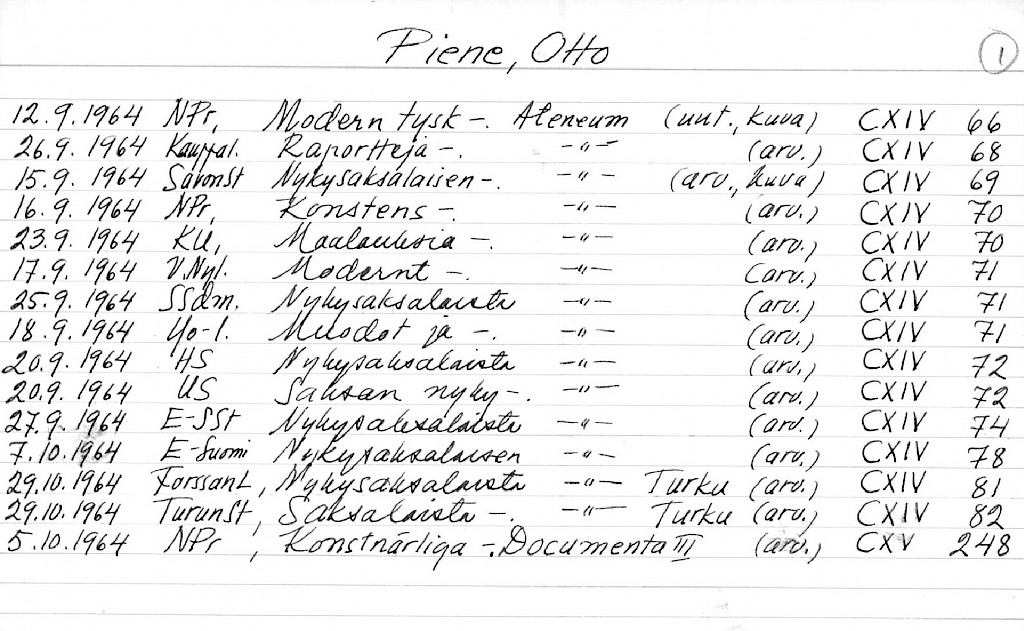 Piene, Otto 1
12.9.1964 NPr, Modern tysk -. Ateneum (uut., kuva) CXIV 66
26.9.1964 Kauppal. Raportteja -. -"- (arv.) CXIV 68
15.9.1964 SavonSt Nykysaksalaisen -. -"- (arv., kuva) CXIV 69
16.9.1964 NPr, Konstens -. -"- (arv.) CXIV 70
23.9.1964 KU, Maalauksia -. -"- (arv.) CXIV 70
17.9.1964 V.Nyl. Modernt -. -"- (arv.) CXIV 71
25.9.1964 SSdm. Nykysaksalaista -"- (arv.) CXIV 71
18.9.1964 Yo-l. Muodot ja -. -"- (arv.) CXIV 71
20.9.1964 HS Nykysaksalaista -"- (arv.) CXIV 72
20.9.1964 US Saksan nyky-. -"- (arv.) CXIV 72
27.9.1964 E-SSt Nykysaksalaista -"- (arv.) CXIV 74
7.10.1964 E-Suomi Nykysaksalaisen -"- (arv.) CXIV 78
29.10.1964 ForssanL, Nykysaksalaista -"- Turku (arv.) CXIV 81
29.10.1964 TurunSt, Saksalaista -. -"- Turku (arv.) CXIV 82
5.10.1964 NPr, Konstnärliga -. Documenta III (arv.) CXV 248